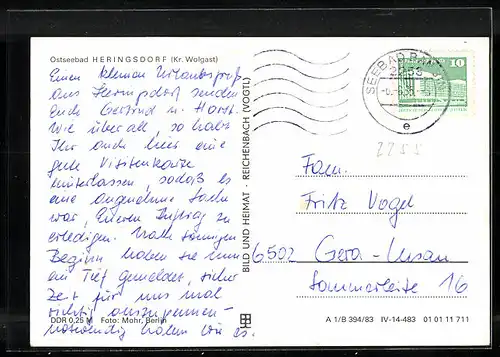 Ostseebad HERINGSDORF (Kr. Wolgast)
Einen kleinen Urlaubsgruß
aus Heringsdorf senden
Euch Gertrud u. Horst.
Wie überall, so habt
Ihr auch hier eine
gute Visitenkarte
hinterlassen, sodaß es
eine angenehme Sache
war, Eueren Auftrag zu
erledigen. Nach sonnigem
Beginn haben sie nun
ein Tief gemeldet, sicher
Zeit für uns mal
richtig auszuspannen -
notwendig haben wir es.
DDR 0,25 M Foto: Mohr, Berlin
BILD UND HEIMAT · REICHENBACH (VOGTL)
SEEBAD
2253
e
10
2255
Fam.
Fritz Vogel
6502 Gera-
Sommerleite 16
A 1/B 394/83 IV-14-483 01 01 11 711